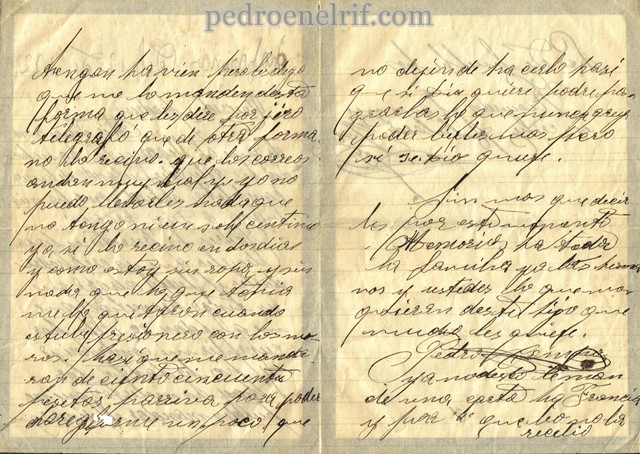 pedroenelrif.com
tengan ha vien pero les digo
que me lo manden desta
forma que les dise por jiro
telegrafo que de otra forma
no lo recivo. que los correos
andan muy mal y yo no
puedo desirles nada que
no tengo ni un solo centimo
ya si lo recivo en dos dias
y como estoy sin ropa y sin
nada que lo que tenia
me lo quitaron cuando
estube prisionero con los mo
ros. haci que me manda
ran de ciento cincuenta
pesetas parriva para poder
un poco, que
no dejen de ha cerlo pasi
que si dios quiere podre pa
lo que nunca
poder berles mas pero
si dios quiere.
Sin mas que decir
les por este momento
Memorias ha toda
la familia y a los herma
nos y ustedes lo que mas
quieran deste hijo que
mucho les quiere.
Pedro
ya no
de una carta ha Francia
y por lo que no la
recibio